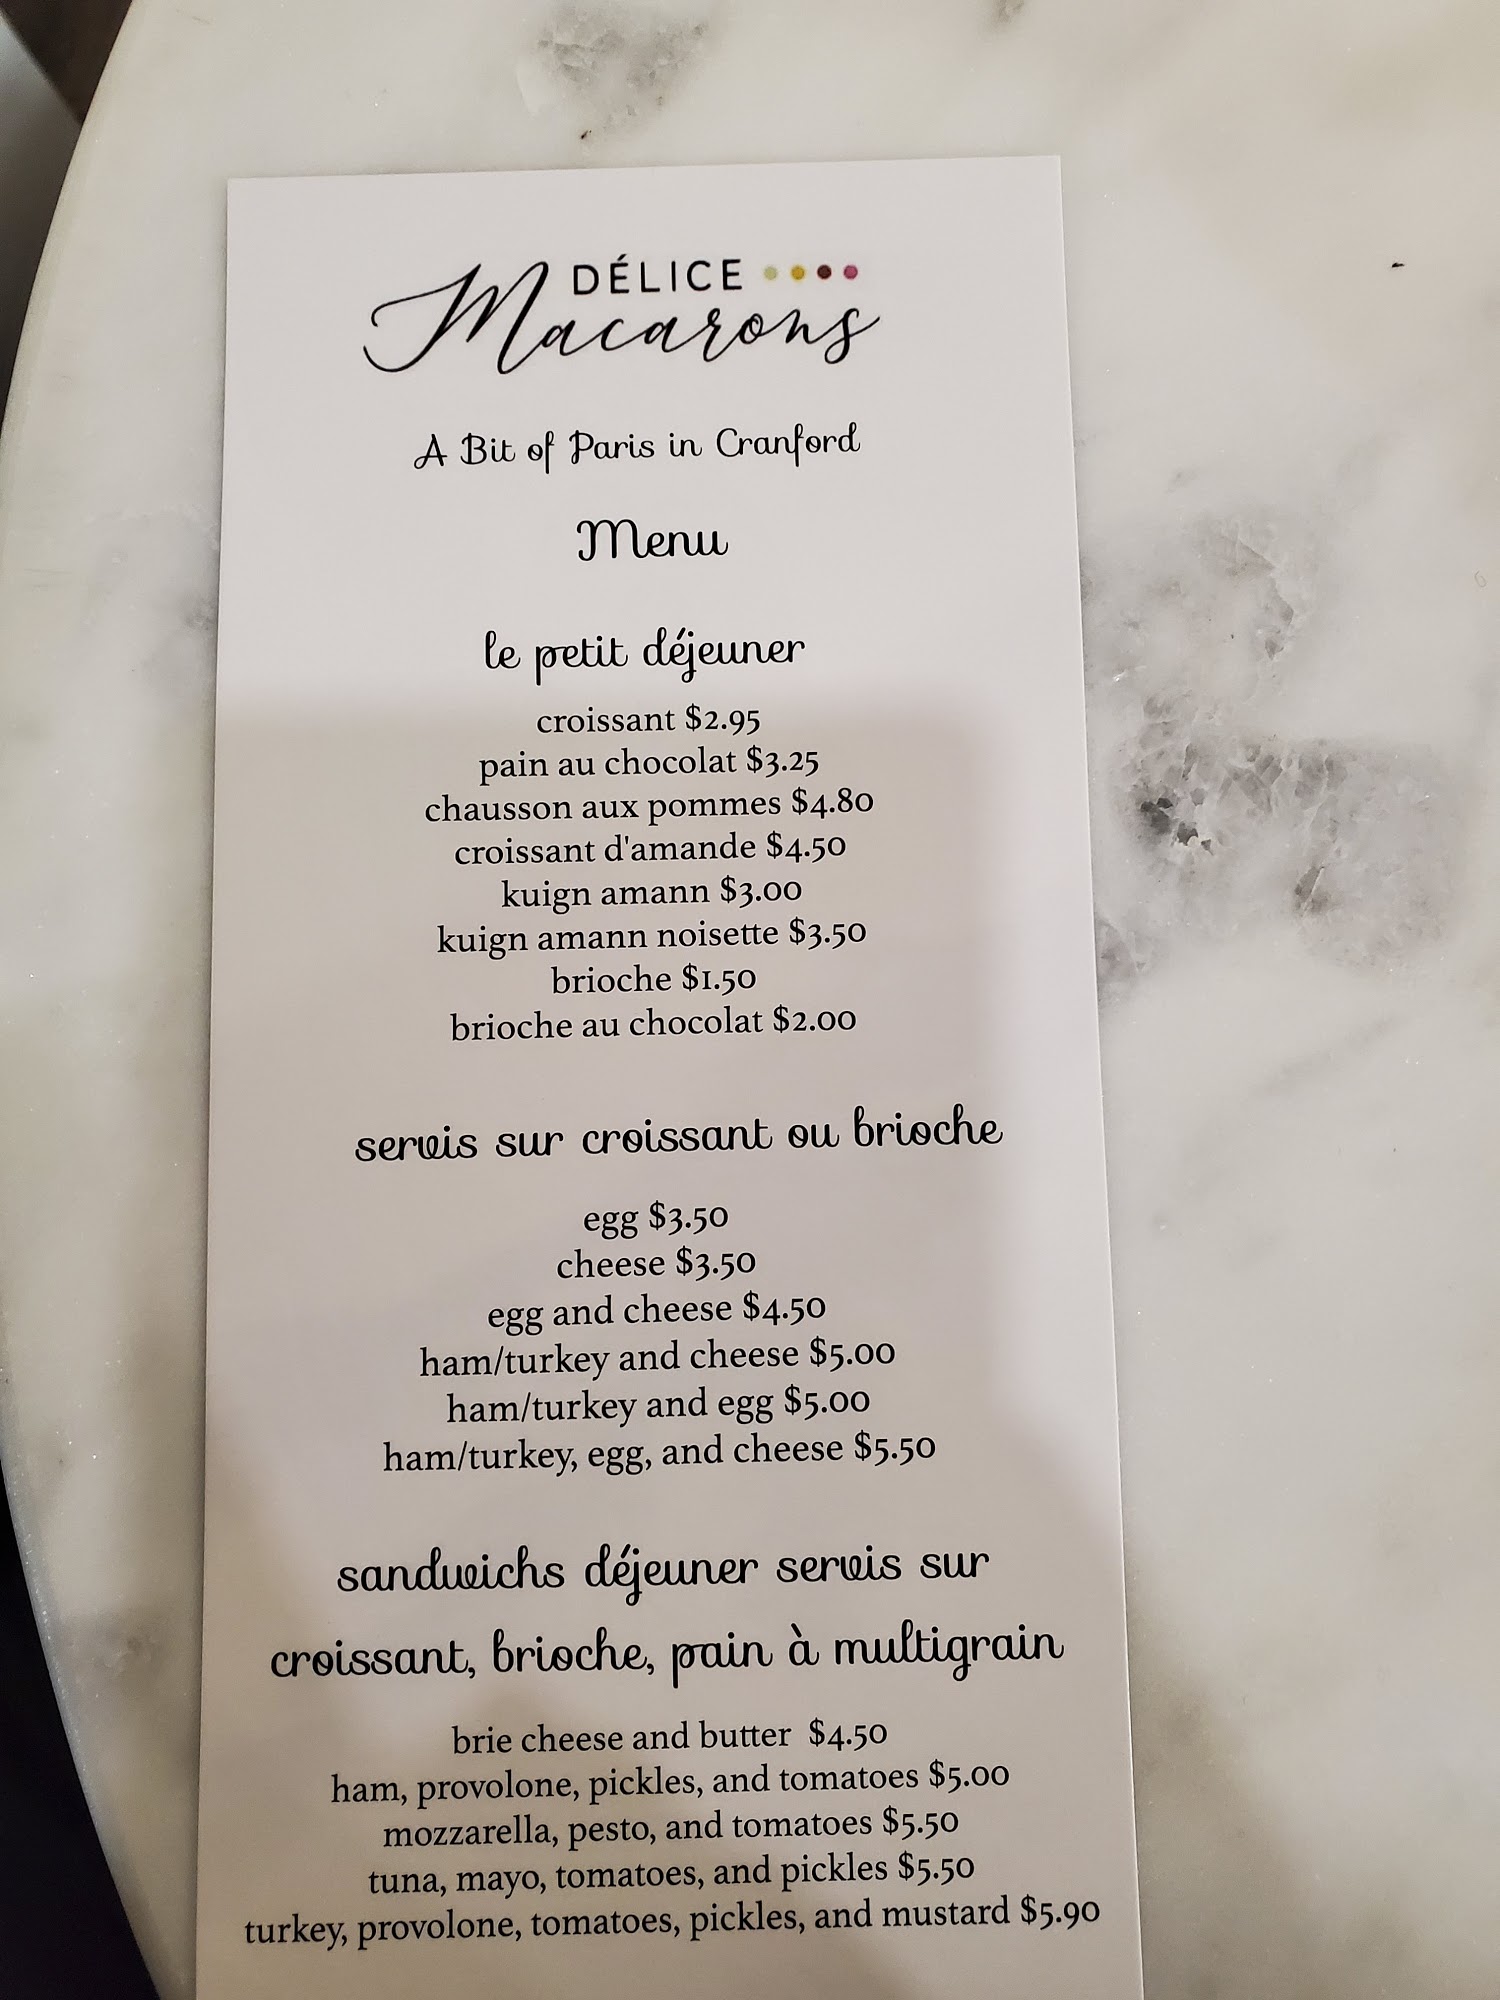 DÉLICE
Macarons
A Bit of Paris in Cranford
Menu
le petit déjeuner
croissant $2.95
pain au chocolat $3.25
chausson aux pommes $4.80
croissant d'amande $4.50
kuign amann $3.00
kuign amann noisette $3.50
brioche $1.50
brioche au chocolat $2.00
servis sur croissant ou brioche
egg $3.50
cheese $3.50
egg and cheese $4.50
ham/turkey and cheese $5.00
ham/turkey and egg $5.00
ham/turkey, egg, and cheese $5.50
sandwichs déjeuner servis sur
croissant, brioche, pain à multigrain
brie cheese and butter $4.50
ham, provolone, pickles, and tomatoes $5.00
mozzarella, pesto, and tomatoes $5.50
tuna, mayo, tomatoes, and pickles $5.50
turkey, provolone, tomatoes, pickles, and mustard $5.90